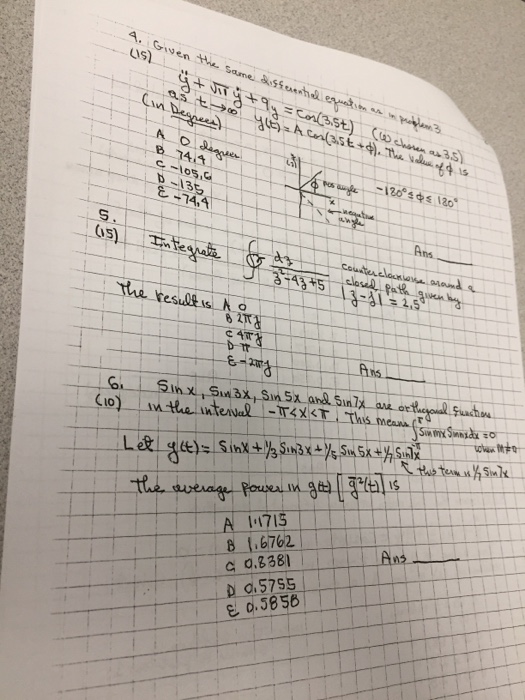 4. Given the same differential equation as in problem 3
(15)
ÿ + √11 ẏ + 9y = cos(3,5t) (ω chosen as 3,5)
as t → ∞ y(t) = A cos(3,5t + ϕ). The value of ϕ is
(in Degrees)
A 0 degrees
B 74,4
C -105,6
D -135
E -74,4
ϕ pos angle
x
negative
angle
-180° ≤ ϕ ≤ 180°
Ans
5.
(15)
Integrate ∮ dz / z²-4z+5 counterclockwise around a
closed path given by
|z-j| = 2,5
The result is A 0
B 2πj
C 4πj
D π
E -2πj
Ans
6.
(10)
Sin x, Sin 3x, Sin 5x and Sin 7x are orthogonal functions
in the interval -π < x < π. This means ∫ Sin mx Sin nx dx = 0
when m≠n
Let g(t) = Sin x + 1/3 Sin 3x + 1/5 Sin 5x + 1/7 Sin 7x
this term is 1/7 Sin 7x
The average power in g(t) [g²(t)] is
A 1.1715
B 1.6762
C 0.8381
D 0.5755
E 0.5858
Ans